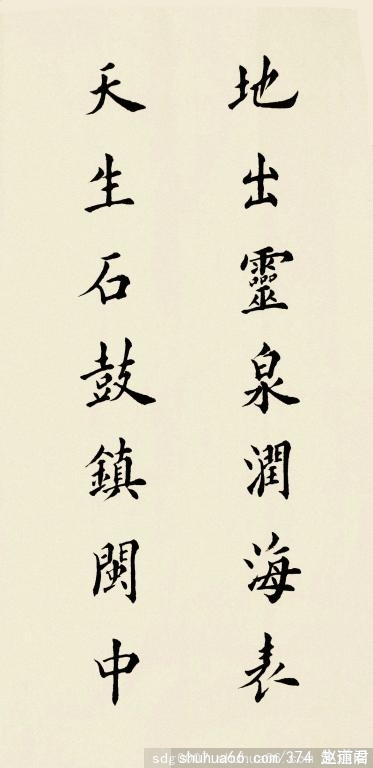 地出靈泉潤海表
天生石鼓鎮閩中
shuhua66 com/374